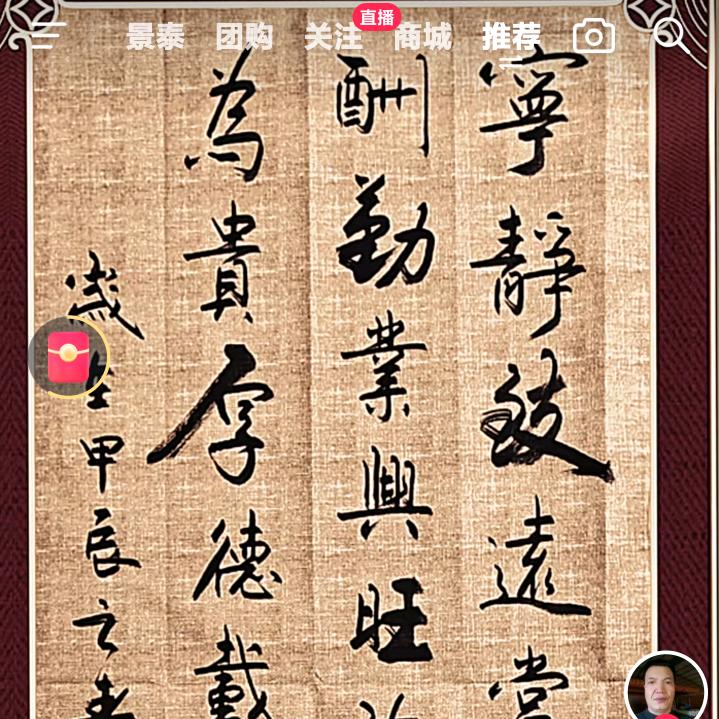 直播
景泰 团购 关注 商城 推荐
寧靜致遠
酬勤業興旺
為貴厚德載
歲在甲辰之春